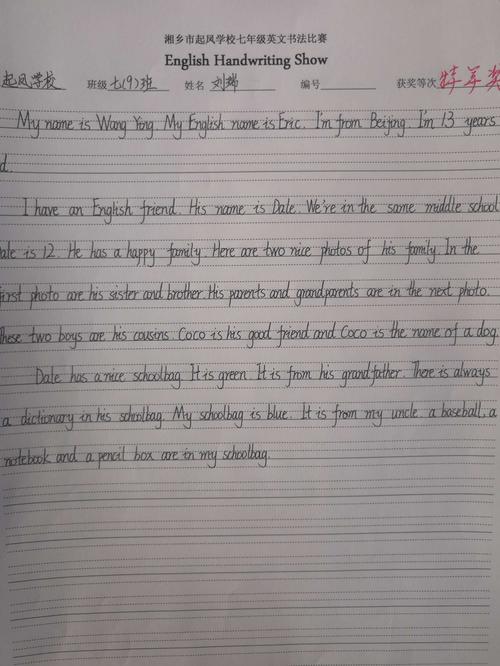 湘乡市起凤学校七年级英文书法比赛
English Handwriting Show
起凤学校 班级 七(9)班 姓名 刘瑞 编号 获奖等次 特等奖
My name is Wang Ying. My English name is Eric. I'm from Beijing. I'm 13 years
d.
I have an English friend. His name is Dale. We're in the same middle school
ale is 12. He has a happy family. Here are two nice photos of his family. In the
first photo are his sister and brother. His parents and grandparents are in the next photo.
These two boys are his cousins. Coco is his good friend and Coco is the name of a dog.
Dale has a nice schoolbag. It is green. It is from his grandfather. There is always
a dictionary in his schoolbag. My schoolbag is blue. It is from my uncle. a baseball, a
notebook and a pencil box are in my schoolbag.